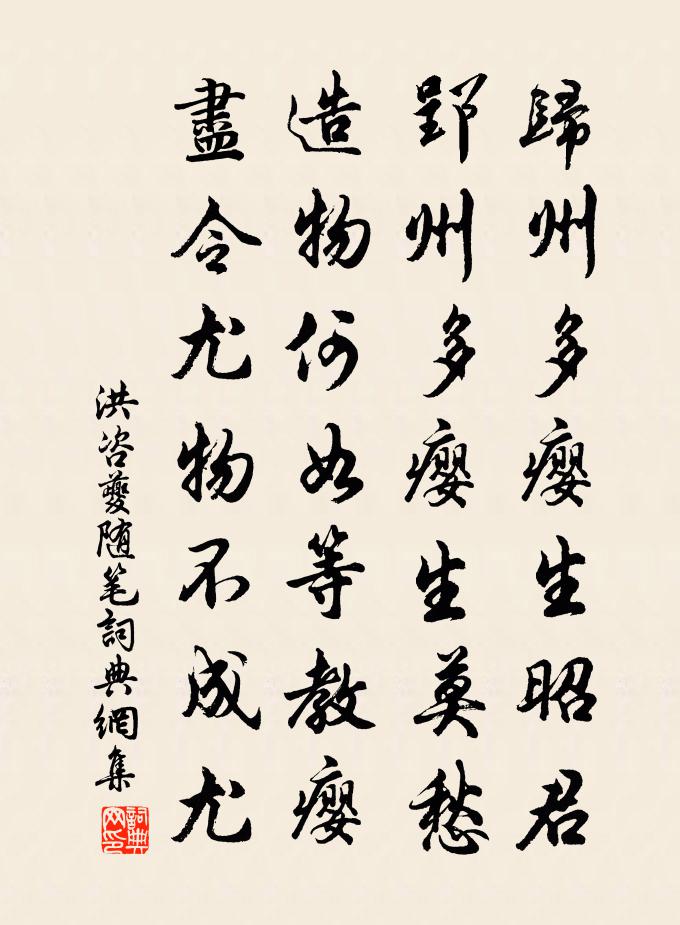 歸州多癭生昭君
郢州多癭生莫愁
造物何如等教癭
盡令尤物不成尤
洪咨夔随笔詞典網集
詞典网印